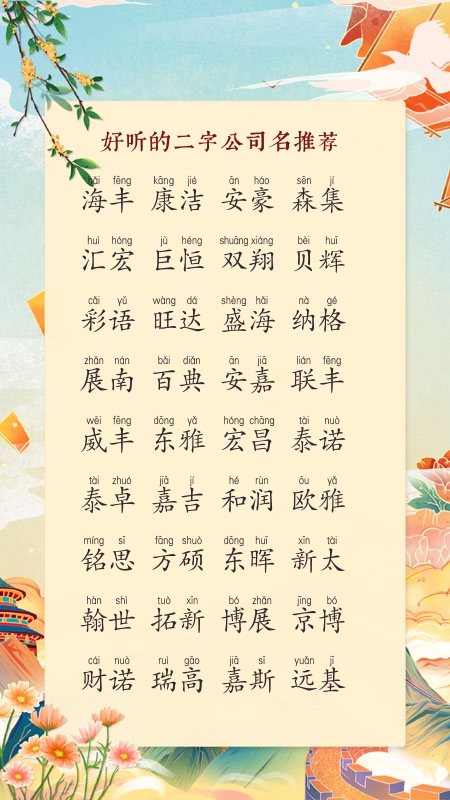 好听的二字公司名推荐
hǎi fēng kāng jié ān háo sēn jí
海丰 康洁 安豪 森集
huì hóng jù héng shuāng xiáng bèi huī
汇宏 巨恒 双翔 贝辉
cǎi yǔ wàng dá shèng hǎi nà gé
彩语 旺达 盛海 纳格
zhǎn nán bǎi diǎn ān jiā lián fēng
展南 百典 安嘉 联丰
wēi fēng dōng yǎ hóng chāng tài nuò
威丰 东雅 宏昌 泰诺
tài zhuó jiā jí hé rùn ōu yǎ
泰卓 嘉吉 和润 欧雅
míng sī fāng shuò dōng huī xīn tài
铭思 方硕 东晖 新太
hàn shì tuò xīn bó zhǎn jīng bó
翰世 拓新 博展 京博
cái nuò ruì gāo jiā sī yuǎn jī
财诺 瑞高 嘉斯 远基